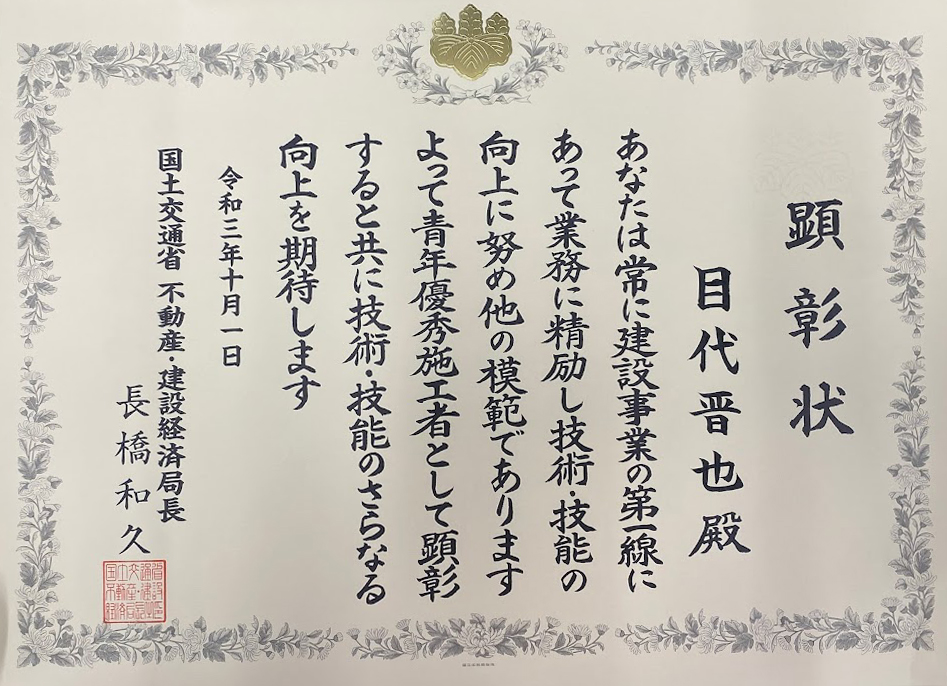 顕彰状
目代晋也殿
あなたは常に建設事業の第一線に
あって業務に精励し技術・技能の
向上に努め他の模範であります
よって青年優秀施工者として顕彰
すると共に技術・技能のさらなる
向上を期待します
令和三年十月一日
国土交通省 不動産・建設経済局長
長橋和久